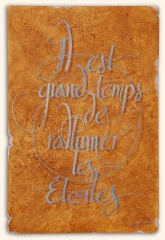 Il est
grand temps
de
rallumer
les
Etoiles